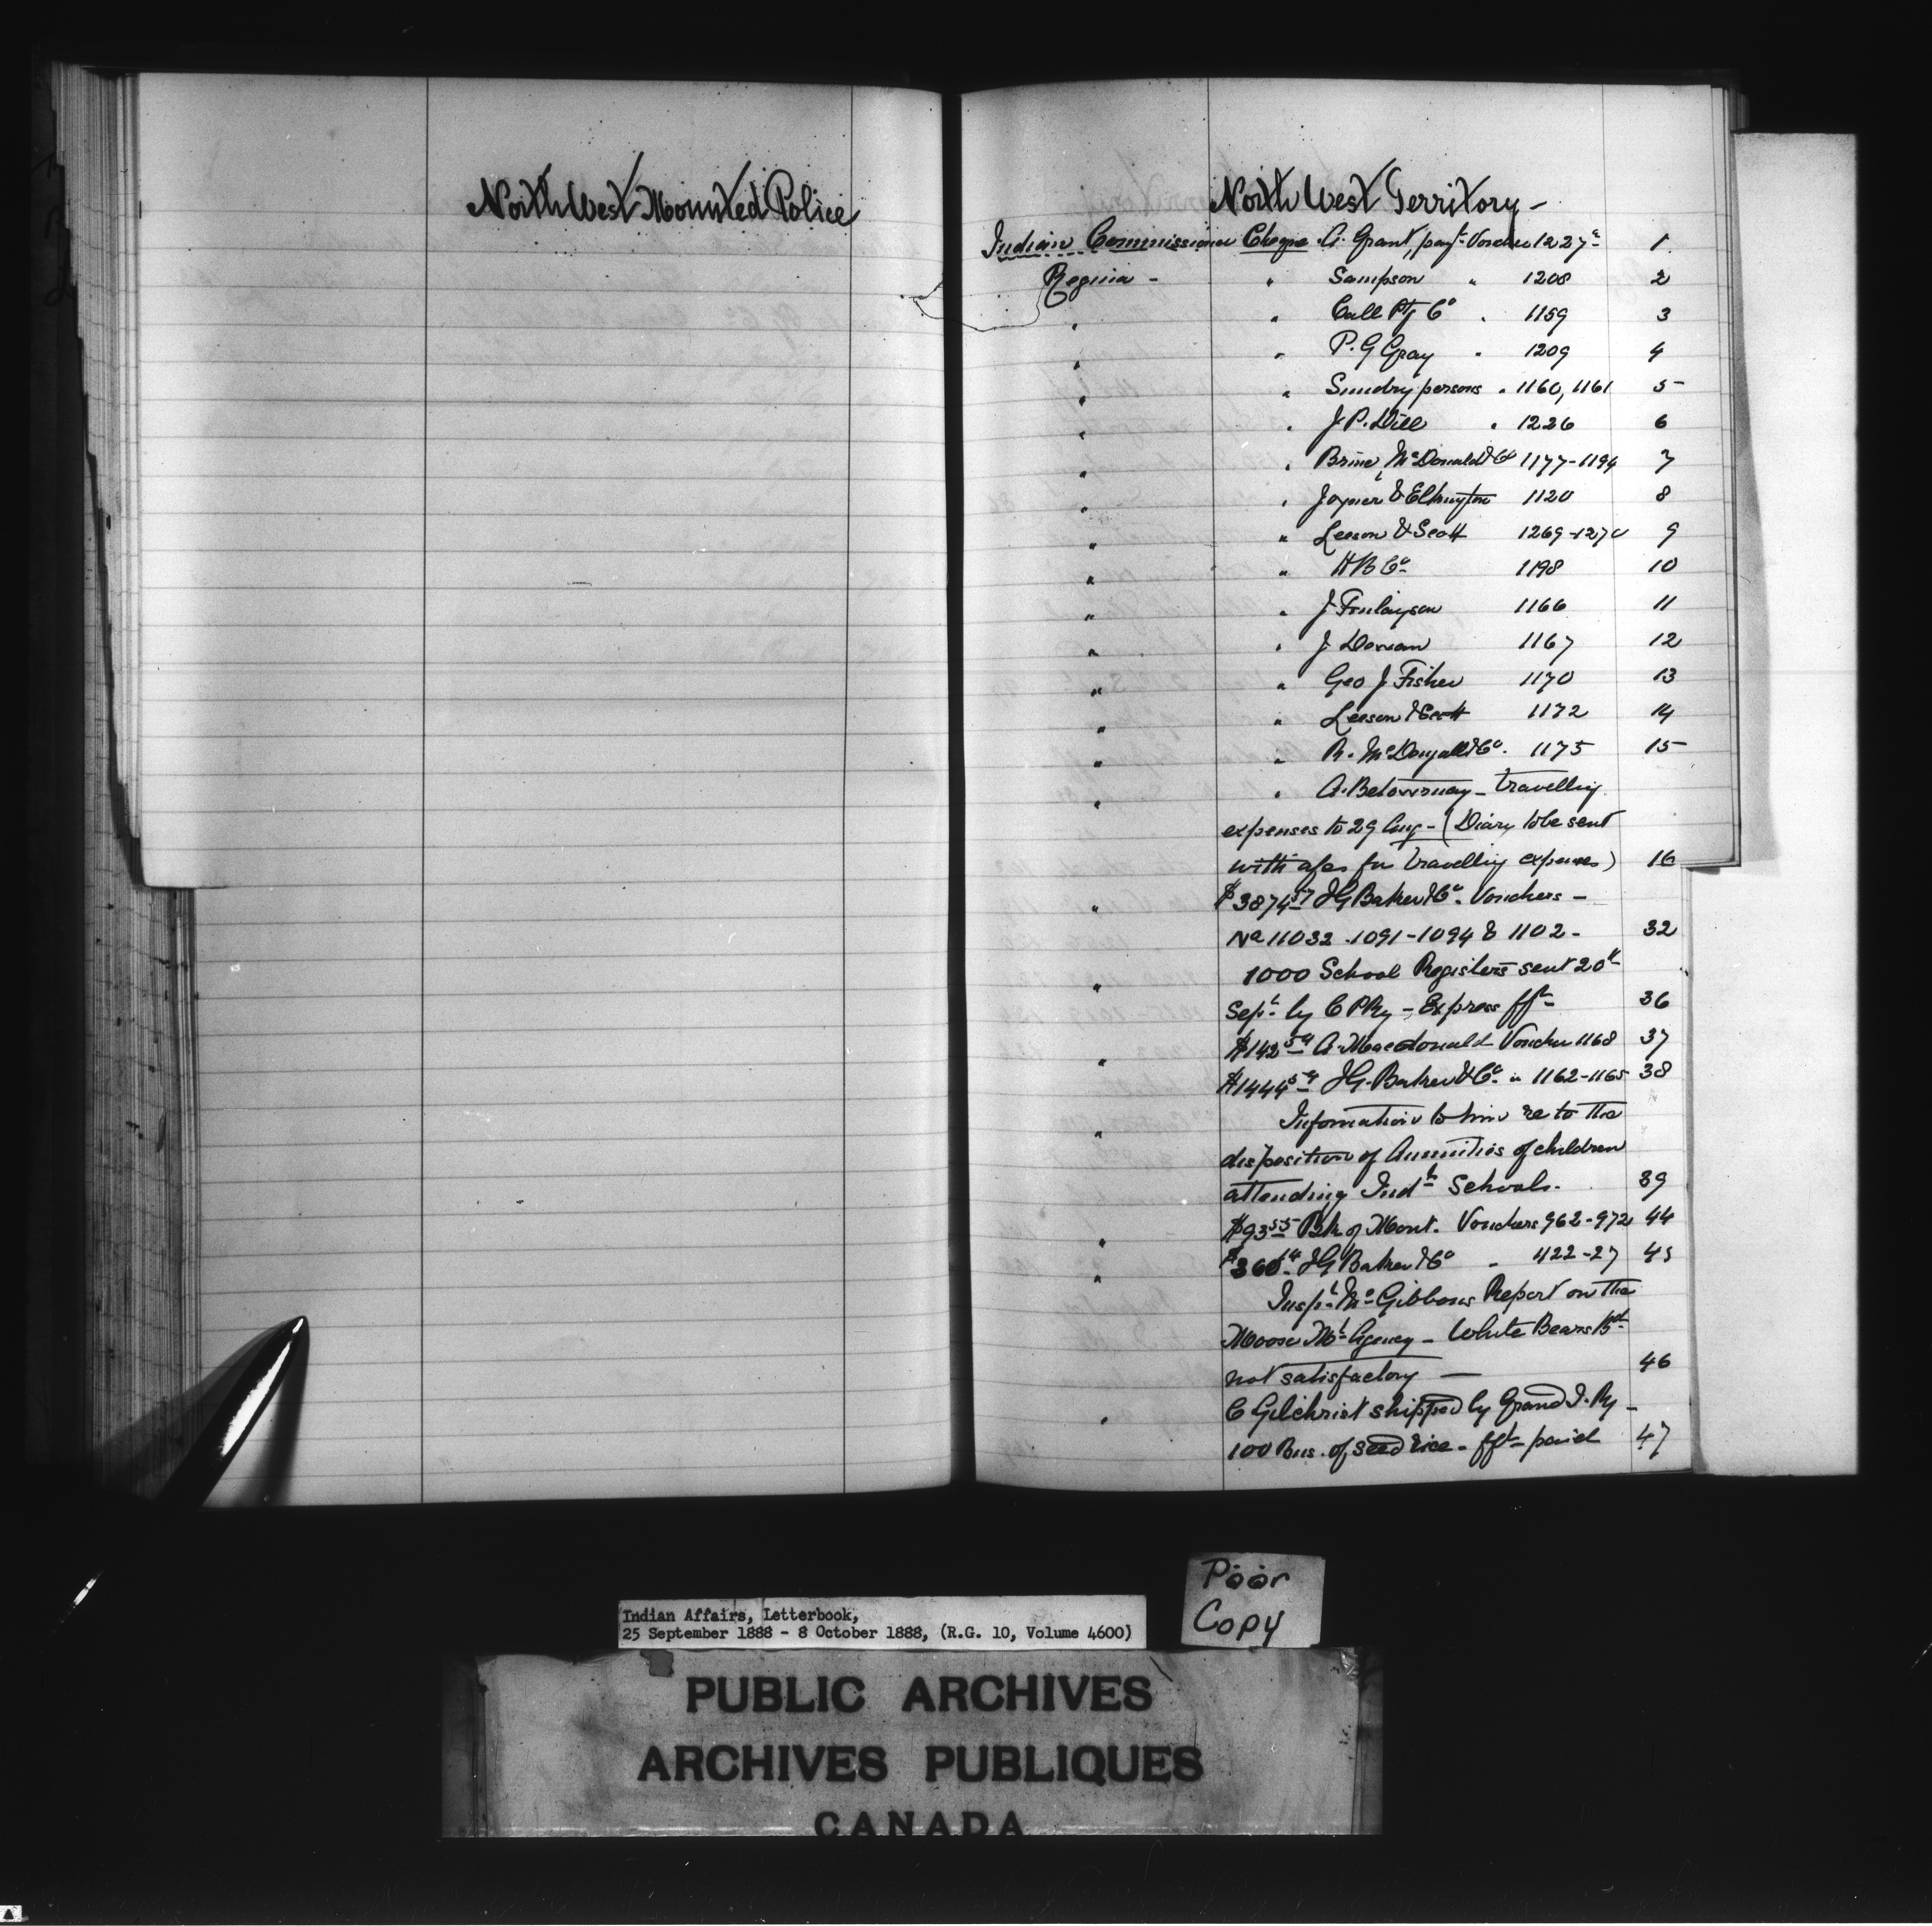 North West Mounted Police
North West Territory -
Indian Commissioner Cheque A. Grant, payt Voucher 1227 1
Regina - " Sampson " 1208 2
" " Call Ptg Co " 1159 3
" " P. G Gray " 1209 4
" " Sundry persons " 1160, 1161 5
" " J. P. Dill " 1226 6
" " Brine, McDonald & Co 1177-1194 7
" " Joyner & Elkington 1120 8
" " Leeson & Scott 1269-1270 9
" " H B Co 1198 10
" " J Finlayson 1166 11
" " J 1167 12
" " Geo J Fisher 1170 13
" " Leeson & Scott 1172 14
" " R. McDougall & Co. 1175 15
" " A. Betournay - Travelling
expenses to 29 Aug - (Diary to be sent
with a/cs for travelling expenses) 16
" $3874.57 J G Baker & Co. Vouchers -
No 11032 . 1091-1094 & 1102 - 32
" 1000 School Registers sent 20th
Sept by C P Ry - Express fft 36
" $142 A. Macdonald Voucher 1168 37
$1444 J G. Baker & Co " 1162-1165 38
" Information to him re to the
disposition of Annuities of children
attending Indl Schools. 39
" $93.55 Bk of Mont. Vouchers 962-972 44
" $360.14 J G Baker & Co " 422-27 45
Inspt McGibbons Report on the
Moose Mt Agency - White Bears Bd
not satisfactory - 46
" C Gilchrist shipped by Grand T. Ry -
100 Bus. of seed rice - fft paid 47
Indian Affairs, Letterbook,
25 September 1888 - 8 October 1888, (R.G. 10, Volume 4600)
Poor
Copy
PUBLIC ARCHIVES
ARCHIVES PUBLIQUES
CANADA